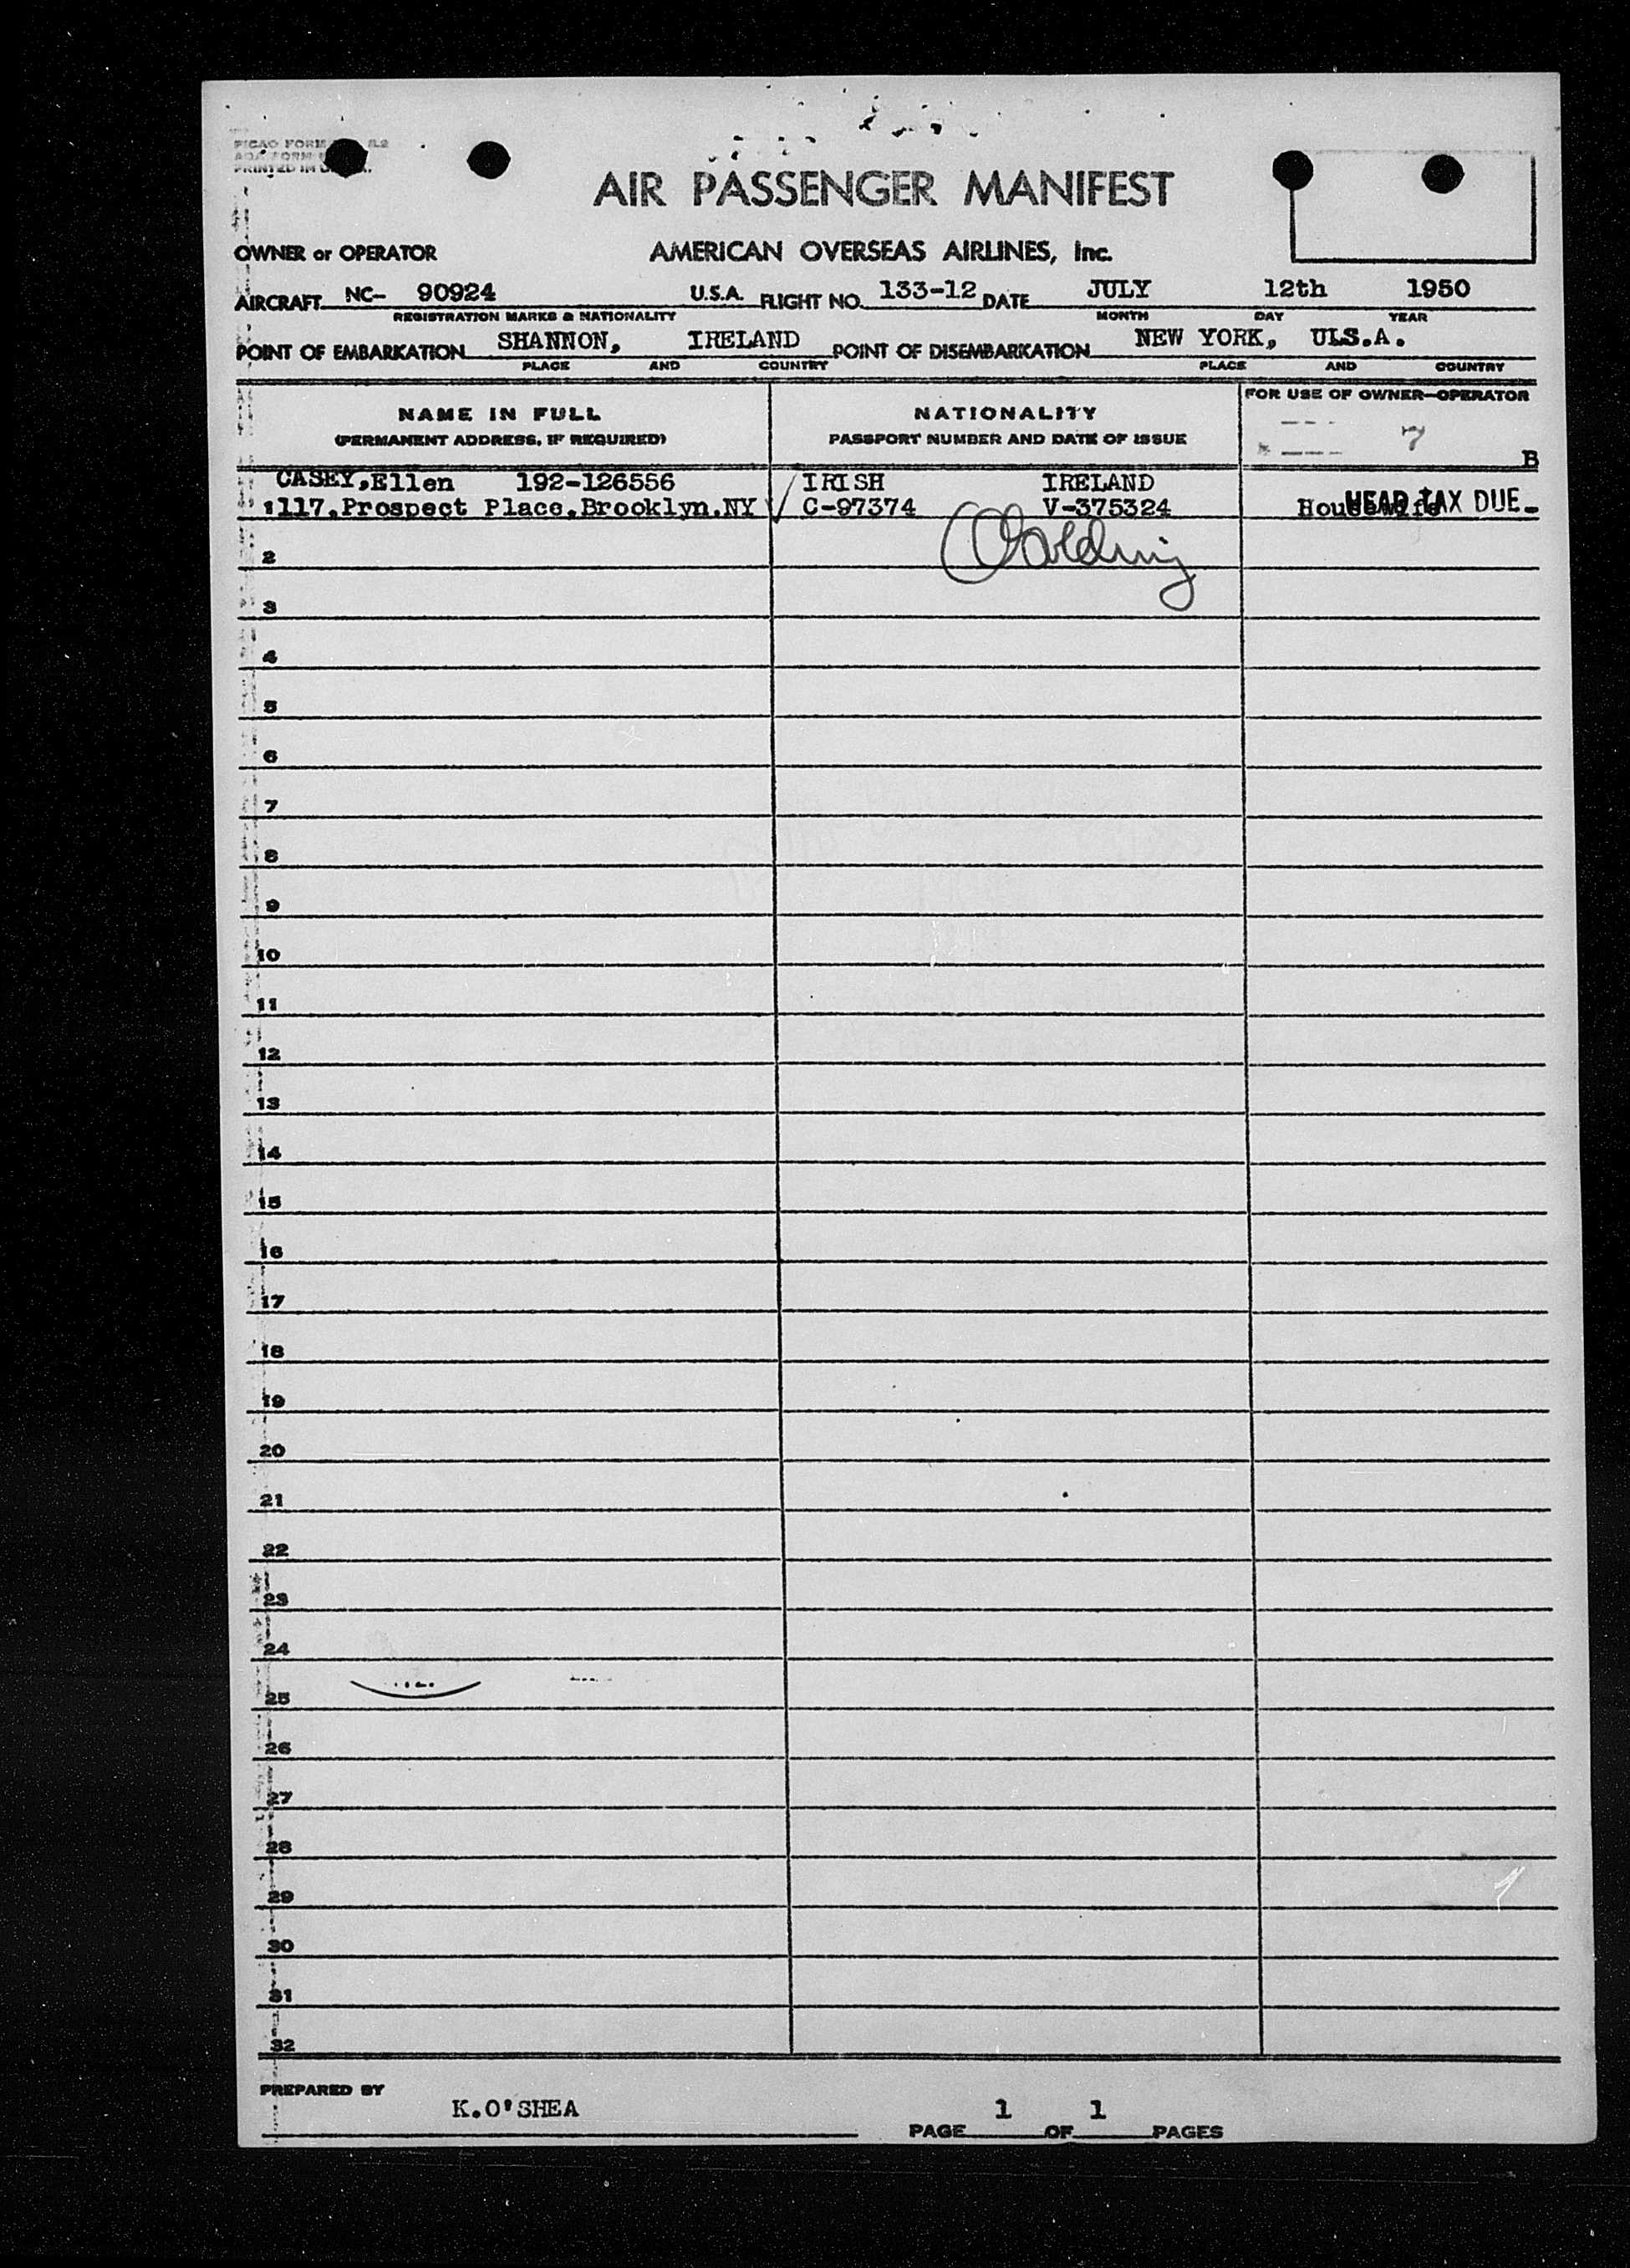 PICAO FORM
AOA FORM
PRINTED IN U.
AIR PASSENGER MANIFEST
OWNER or OPERATOR AMERICAN OVERSEAS AIRLINES, Inc.
AIRCRAFT NC- 90924 U.S.A. FLIGHT NO. 133-12 DATE JULY 12th 1950
REGISTRATION MARKS & NATIONALITY MONTH DAY YEAR
POINT OF EMBARKATION SHANNON, IRELAND POINT OF DISEMBARKATION NEW YORK, ULS.A.
PLACE AND COUNTRY PLACE AND COUNTRY
FOR USE OF OWNER—OPERATOR
NAME IN FULL NATIONALITY
(PERMANENT ADDRESS, IF REQUIRED) PASSPORT NUMBER AND DATE OF ISSUE 7
B
CASEY,Ellen 192-126556 IRISH IRELAND
1 117,Prospect Place,Brooklyn,NY C-97374 V-375324 Housewife HEAD TAX DUE
2
3
4
5
6
7
8
9
10
11
12
13
14
15
16
17
18
19
20
21
22
23
24
25
26
27
28
29
30
31
32
PREPARED BY
K.O'SHEA
PAGE 1 OF 1 PAGES